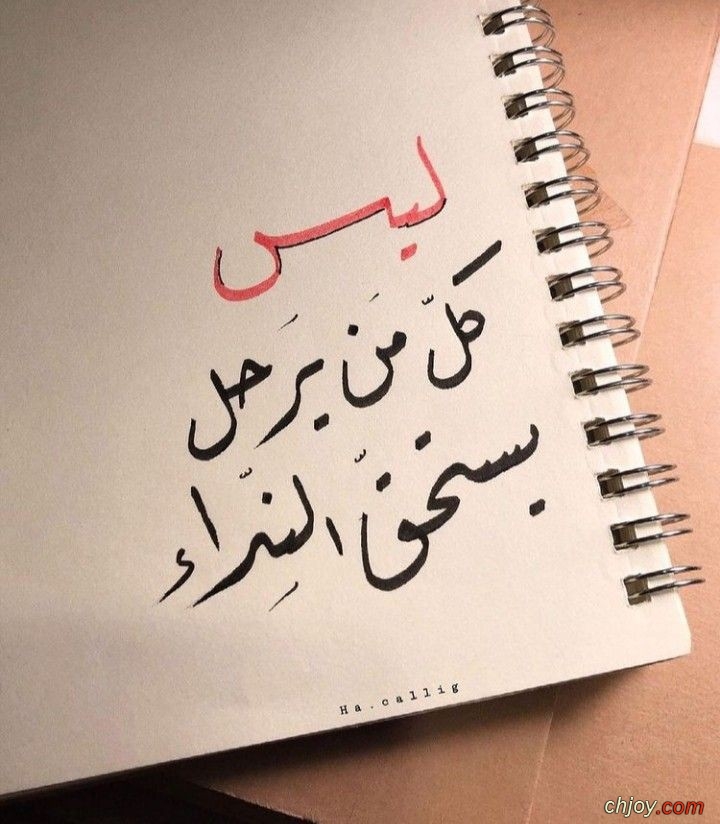 ليس
كلّ مَن يرَحل
يستحقّ النِدّاء
Ha.callig
chjoy.com